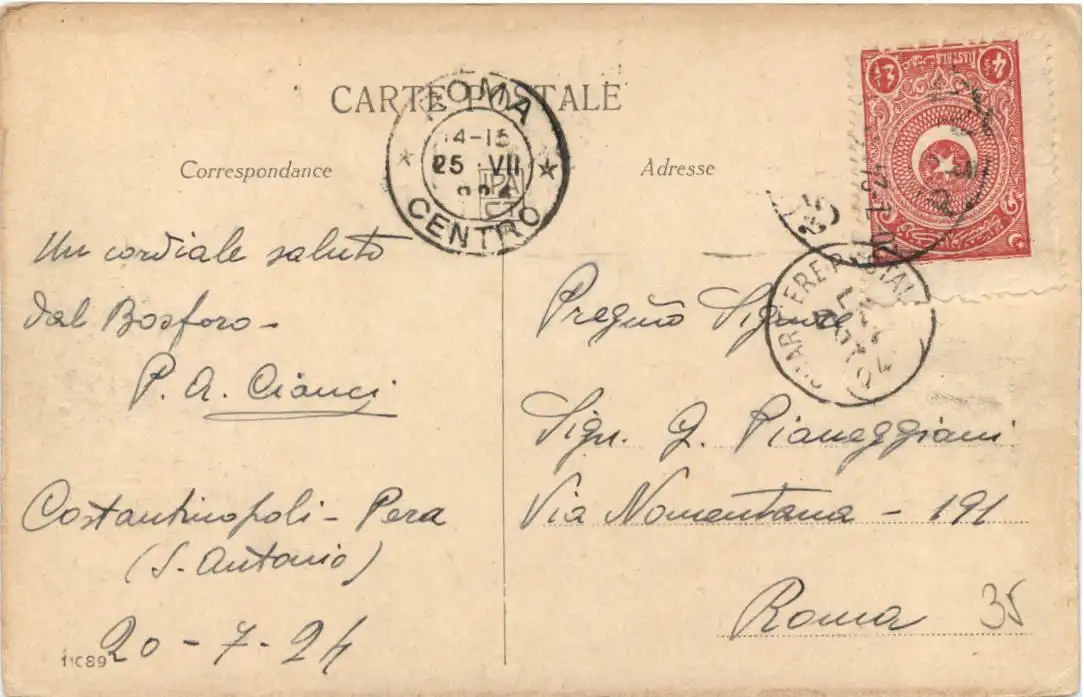 CARTE POSTALE
Correspondance
Adresse
ROMA
14-15
25 VII
CENTRO
Un cordiale saluto
dal Bosforo-
P. A. Cianci
Costantinopoli - Pera
(S. Antonio)
20-7-24
11C89
Sign. G. Pianeggiani
Via Nomentana - 191
Roma
35
PIASTRES